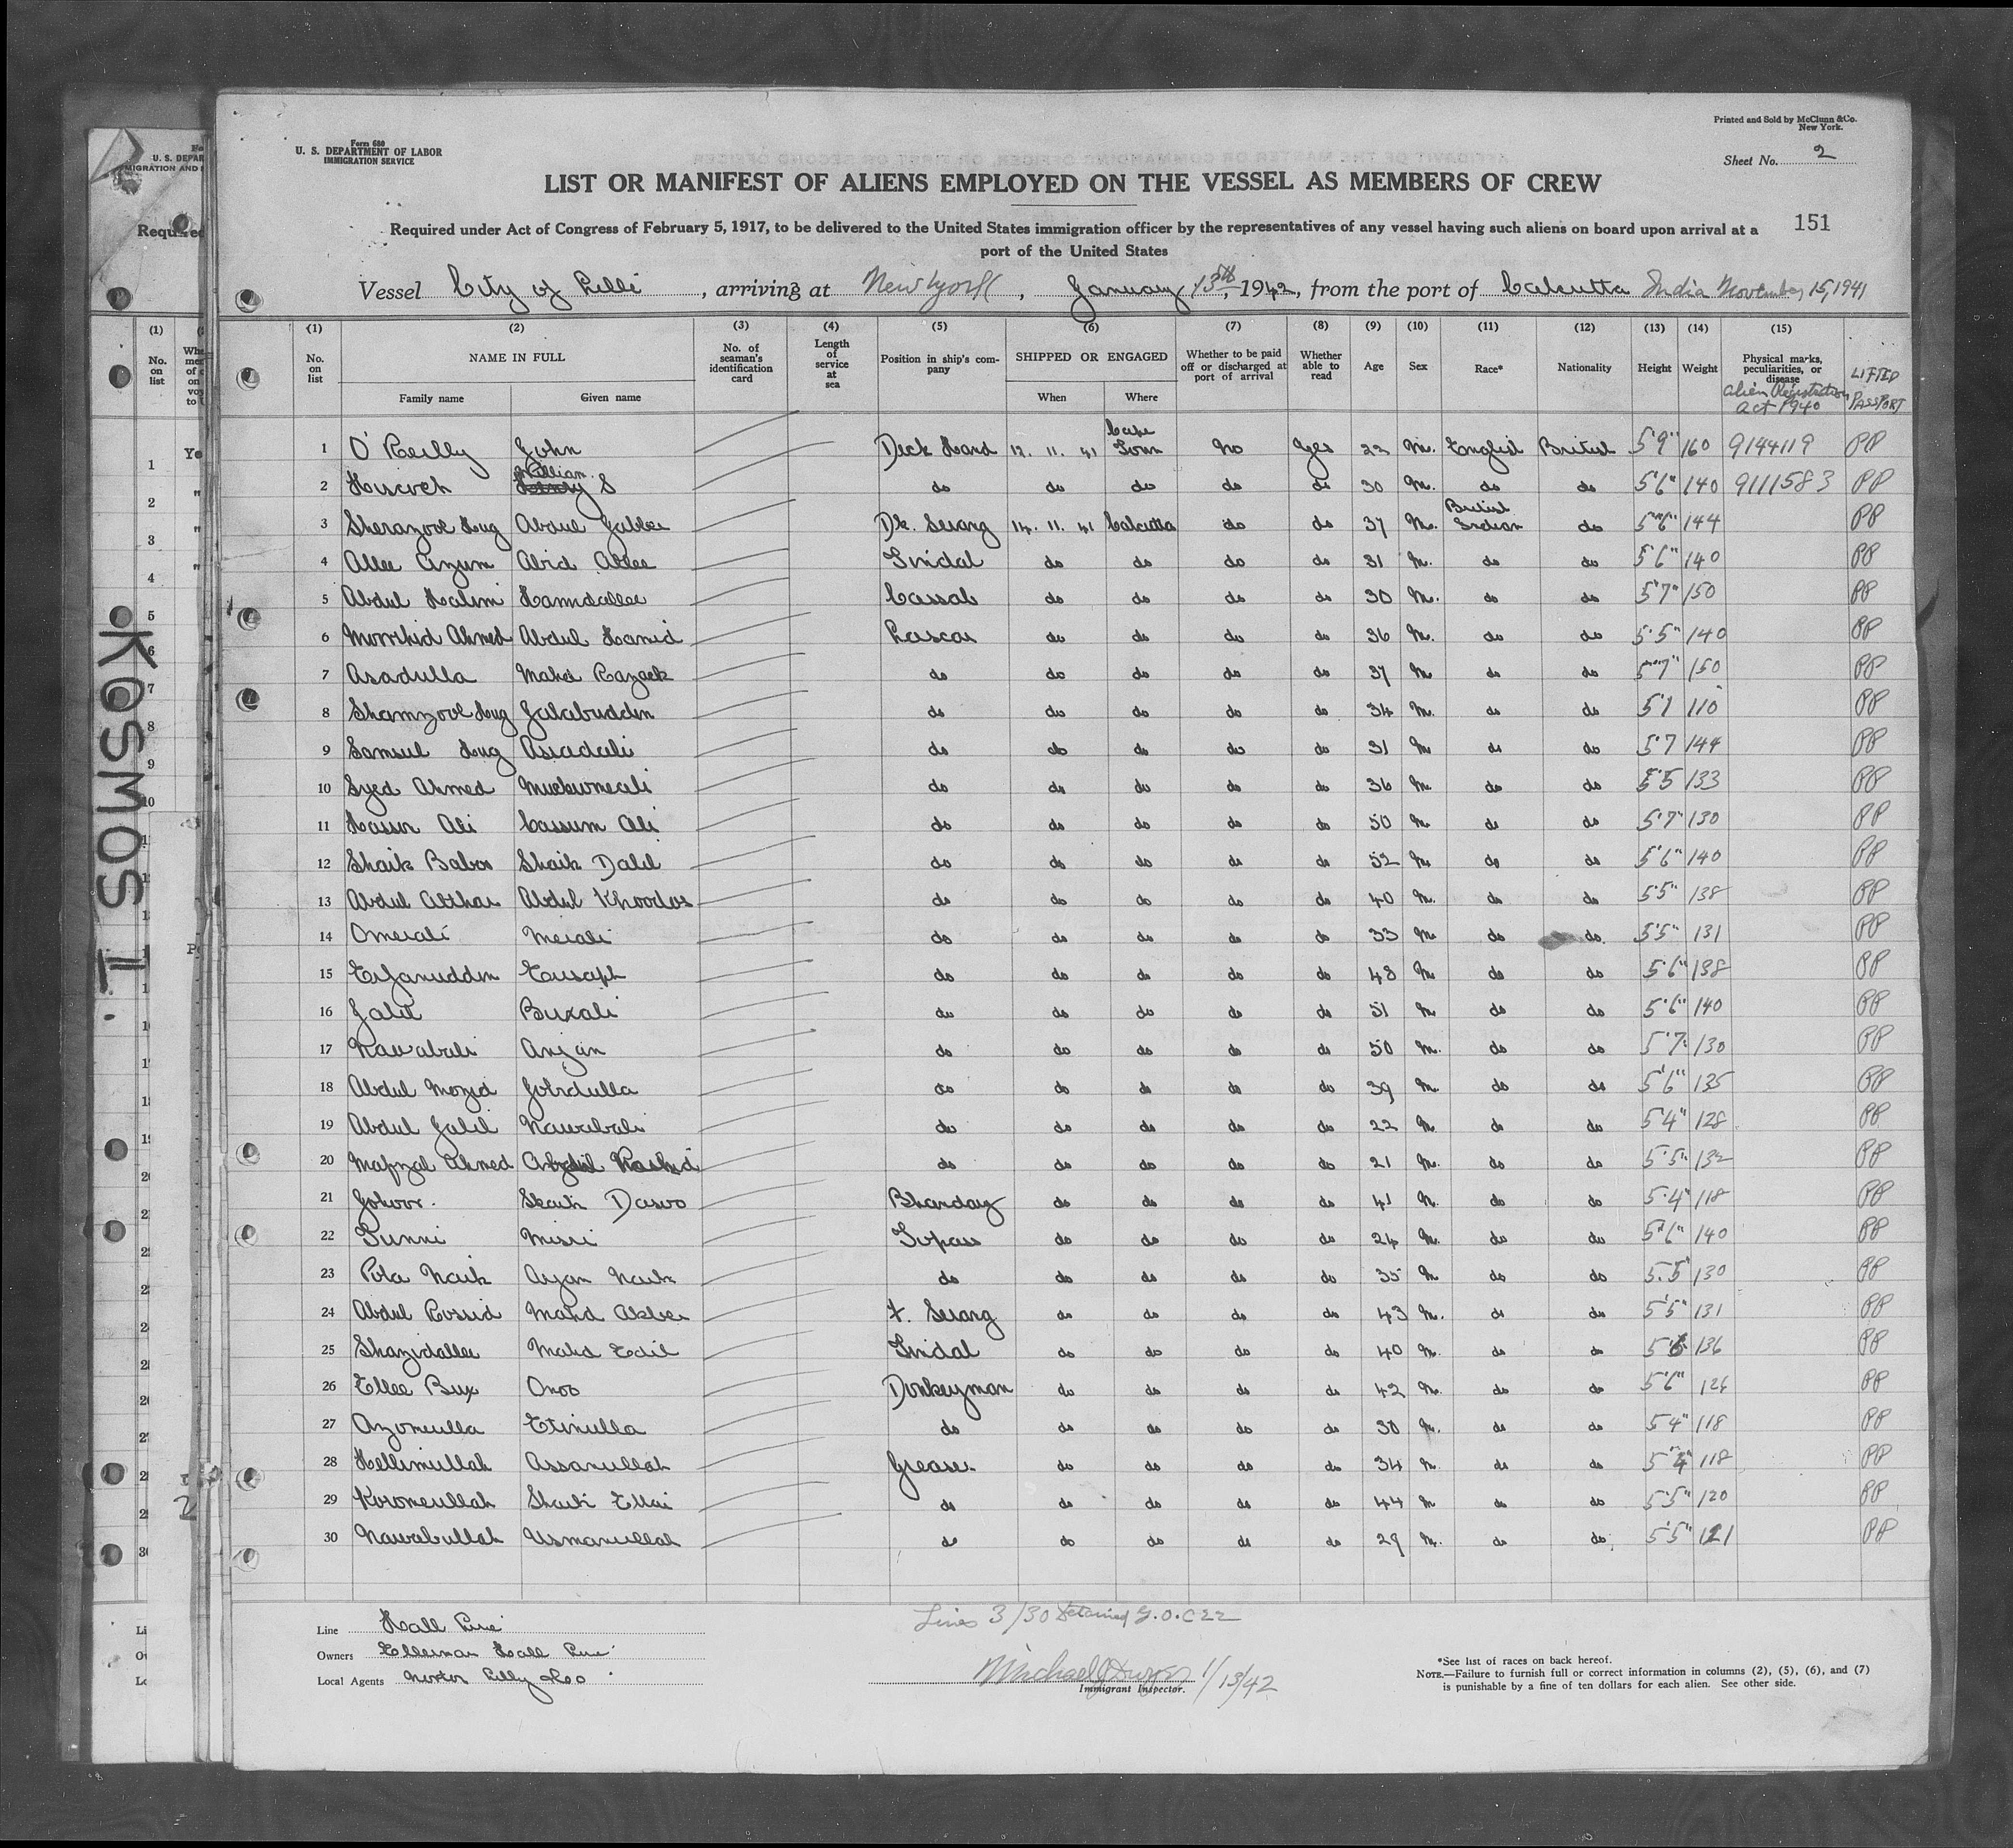 Form 680
U. S. DEPARTMENT OF LABOR
IMMIGRATION SERVICE
Printed and Sold by McClunn & Co.
New York.
Sheet No. 2
LIST OR MANIFEST OF ALIENS EMPLOYED ON THE VESSEL AS MEMBERS OF CREW
Required under Act of Congress of February 5, 1917, to be delivered to the United States immigration officer by the representatives of any vessel having such aliens on board upon arrival at a
port of the United States
151
Vessel City of Delhi, arriving at New York, January 13th, 1942, from the port of Calcutta India November 15, 1941
(1) (2) (3) (4) (5) (6) (7) (8) (9) (10) (11) (12) (13) (14) (15)
No. on list NAME IN FULL Family name Given name No. of seaman's identification card Length of service at sea Position in ship's company SHIPPED OR ENGAGED When Where Whether to be paid off or discharged at port of arrival Whether able to read Age Sex Race* Nationality Height Weight Physical marks, peculiarities, or disease Alien Registration Act 1940 LIFTED PASSPORT
1 O'Reilly John Deck Hand 12. 11. 41 Cape Town No Yes 22 M. English British 5'9" 160 9144119 PP
2 William S do do do do do 30 M. do do 5'6" 140 9111583 PP
3 Sherazool Hug Abdul Jabbar Dk. Serang 14. 11. 41 Calcutta do do 37 M. British Indian do 5'6" 144 PP
4 Allee Azum Abid Allee Tindal do do do do 31 M. do do 5'6" 140 PP
5 Abdul Halim Hamdallee Cassab do do do do 30 M. do do 5'7" 150 PP
6 Morrshid Ahmed Abdul Hamid Lascar do do do do 36 M. do do 5'5" 140 PP
7 Asadulla Mahd Razack do do do do do 37 M do do 5'7" 150 PP
8 Shamzool Hug Jalabuddin do do do do do 34 M. do do 5'1 110 PP
9 Samsul Hug Asadali do do do do do 31 M do do 5'7 144 PP
10 Syed Ahmed do do do do do 36 M do do 5'5 133 PP
11 Hasson Ali Cassum Ali do do do do do 50 M do do 5'7" 130 PP
12 Shaik Baboo Shaik Dalil do do do do do 52 M do do 5'6" 140 PP
13 Abdul Atthar Abdul Khoodos do do do do do 40 M. do do 5'5" 138 PP
14 Omerali Merali do do do do do 33 M do do 5'5" 131 PP
15 Erfanuddin Eusaph do do do do do 48 M do do 5'6" 138 PP
16 Jalil Buxali do do do do do 51 M do do 5'6" 140 PP
17 Nawabali Anjan do do do do do 50 M. do do 5'7" 130 PP
18 Abdul Mozid Jobdulla do do do do do 39 M. do do 5'6" 135 PP
19 Abdul Jalil Nawabali do do do do do 22 M do do 5'4" 128 PP
20 Mafzal Ahmed Abdul Rashid do do do do do 21 M. do do 5'5" 132 PP
21 Johoor. Shaik Dasoo Bhandary do do do do 41 M. do do 5'4" 118 PP
22 Tunni Misri Topass do do do do 24 M. do do 5'6" 140 PP
23 Pola Naik Arjan Naik do do do do do 35 M do do 5'5" 130 PP
24 Abdul Rossid Mahd Akber F. Serang do do do do 43 M. do do 5'5" 131 PP
25 Shazidallee Mahd Edil Tindal do do do do 40 M. do do 136 PP
26 Ellee Bux Onoo Donkeyman do do do do 42 M. do do 5'6" PP
27 Azomulla Etimulla do do do do do 30 M. do do 5'4" 118 PP
28 Hellimullah Assanullah Greaser do do do do 34 M do do 5'4" 118 PP
29 Koromeullah Shaik Ellai do do do do do 44 M do do 5'5" 120 PP
30 Nawabullah Usmanullah do do do do do 29 M. do do 5'5" 121 PP
Line Hall Line
Owners Ellerman Hall Line
Local Agents Norton Lilly & Co
Lines 3/30 Detained G.O.C 22
Michael J 1/13/42
Immigrant Inspector.
*See list of races on back hereof.
NOTE.—Failure to furnish full or correct information in columns (2), (5), (6), and (7)
is punishable by a fine of ten dollars for each alien. See other side.
KOSMOS I